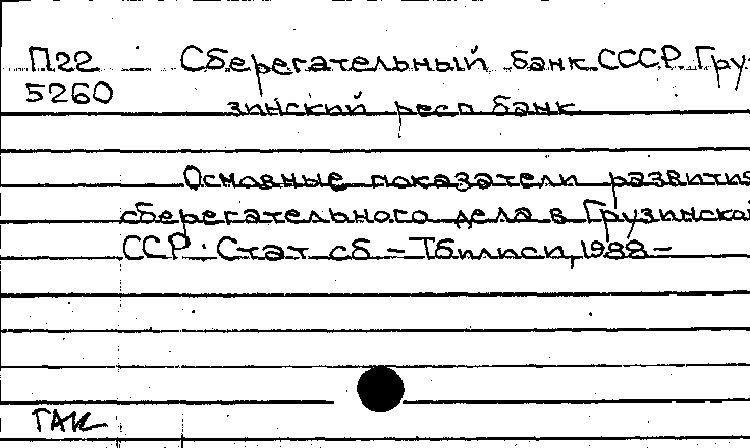 П22 Сберегательный банк СССР. Гру-
5260 зинский респ банк
Основные показатели развития
сберегательного дела в Грузинской
ССР: Стат сб – Тбилиси, 1988 –
ГАК